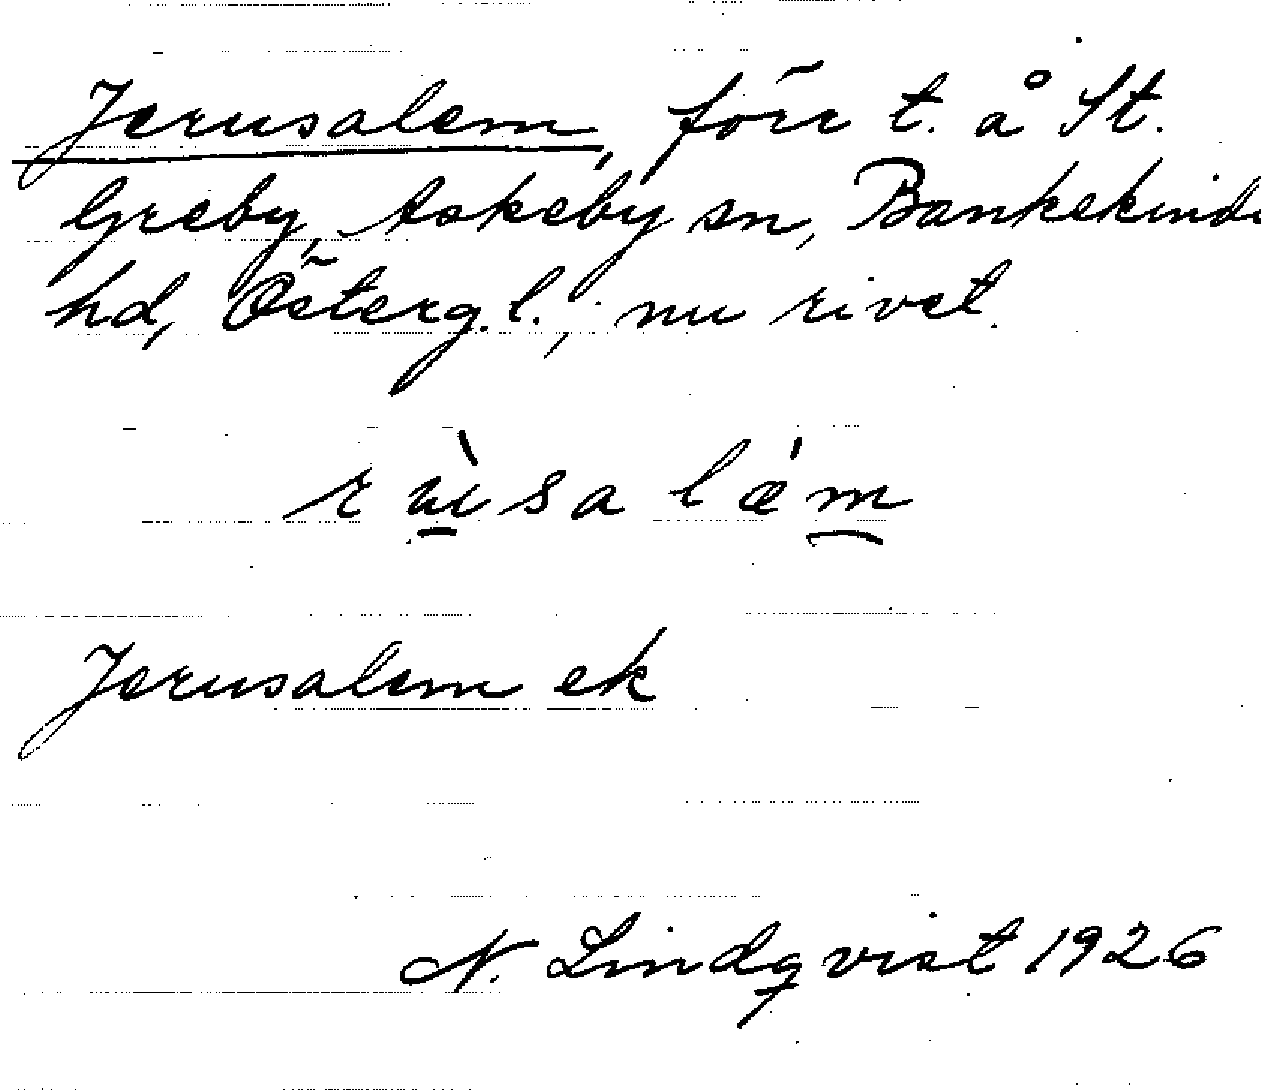 Jerusalem, förr t. å St.
Greby, Askeby sn, Bankekinds
hd, Österg.l., nu rivet.
rùsalém
Jerusalem ek
N. Lindqvist 1926